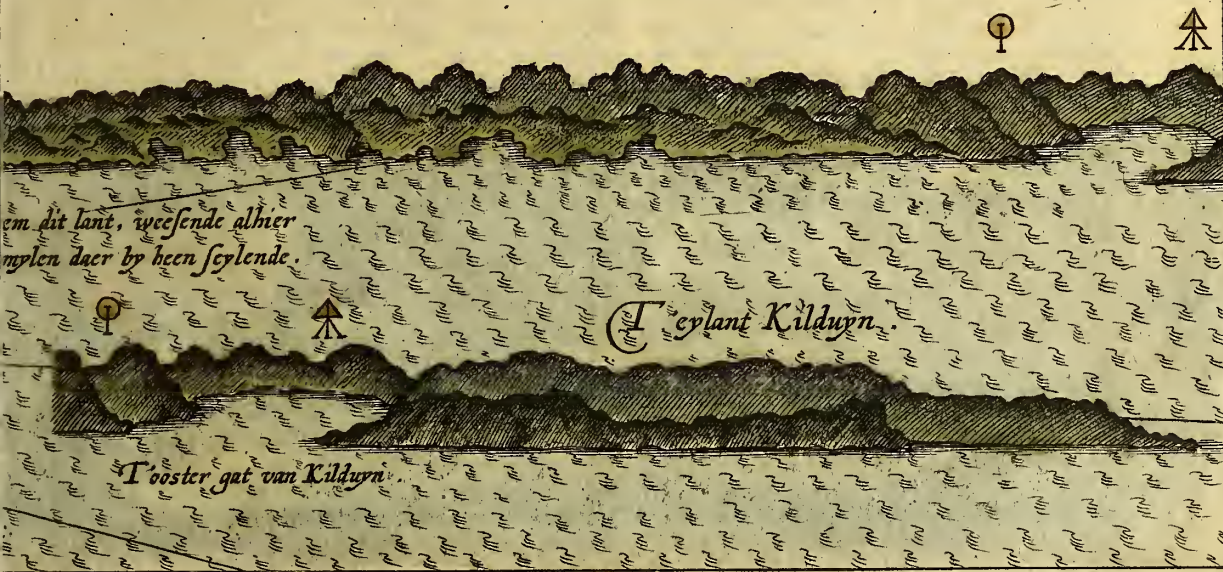 em dit lant, weeſende alhier
mylen daer by heen ſeylende.
T'eylant Kilduyn.
T'ooster gat van Kilduyn.